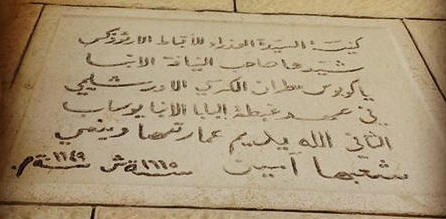 كنيسة السيدة العذراء للأقباط الارثوذكس
شيدها صاحب النيافة الانبا
ياكوبوس مطران الكرسي الاورشليمي
في عهد غبطة البابا الانبا يوساب
الثاني الله يديم عمارتها وينمي
شعبها آمين سنة ١٦٦٥ش سنة ١٩٤٩م.